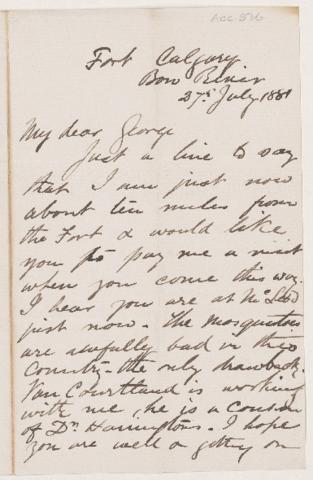 Acc. 516
Fort Calgary
Bow River
27th July 1881
My dear George
Just a line to say
that I am just now
about ten miles from
the Fort & would like
you to pay me a visit
when you come this way.
I hear you are at McLeod
just now. The mosquitoes
are awfully bad in this
country - the only drawback.
Van Courtland is working
with me, he is a cousin
of Dr. Harringtons. I hope
you are well & getting on